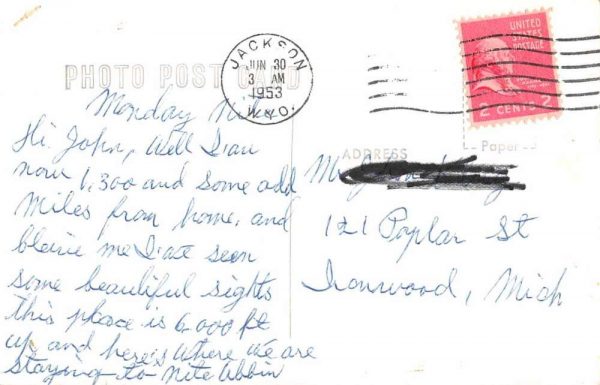 JACKSON
JUN 30
3 AM
1953
WYO.
UNITED
STATES
POSTAGE
2 CENTS 2
PHOTO POST CARD
Monday Nite
Hi John, Well I am
now 1,300 and some odd
miles from home, and
bleive me I've seen
some beautiful sights
this place is 6,000 ft
up and here's where we are
staying to-nite
ADDRESS
Paper
121 Poplar St
Ironwood, Mich